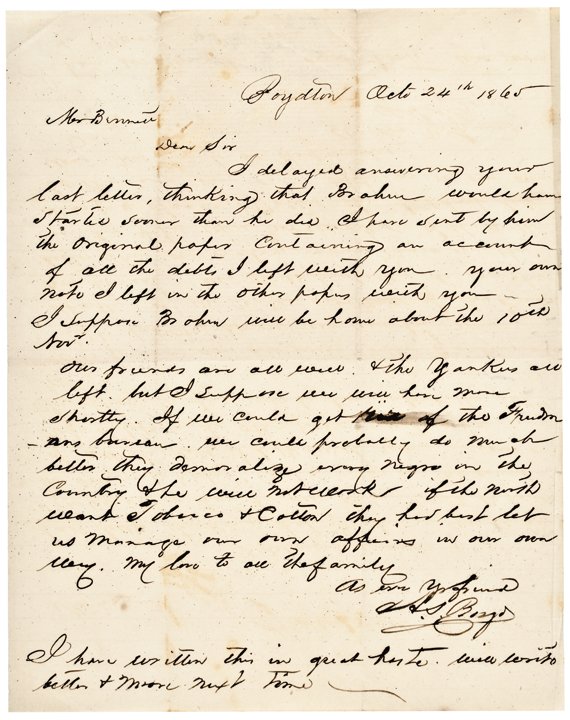 Boydton Octo 24th 1865
Mr Bennett
Dear Sir
I delayed answering your
last letter, thinking that Brahm would have
started sooner than he did. I have sent by him
the original paper containing an account
of all the debts I left with you. your own
note I left in the other papers with you
I suppose Brahm will be home about the 10th
Novr.
Our friends are all well. & the Yankees all
left. but I suppose we will have more
shortly. If we could get rid of the Freedm
-ans bureau. we could probably do much
better they demoralize every negro in the
Country & he will not work if the North
want Tobacco & Cotton they had best let
us manage our own affairs in our own
way. My love to all the family
As ever Yr friend
I have written this in great haste. will write
better & more next time